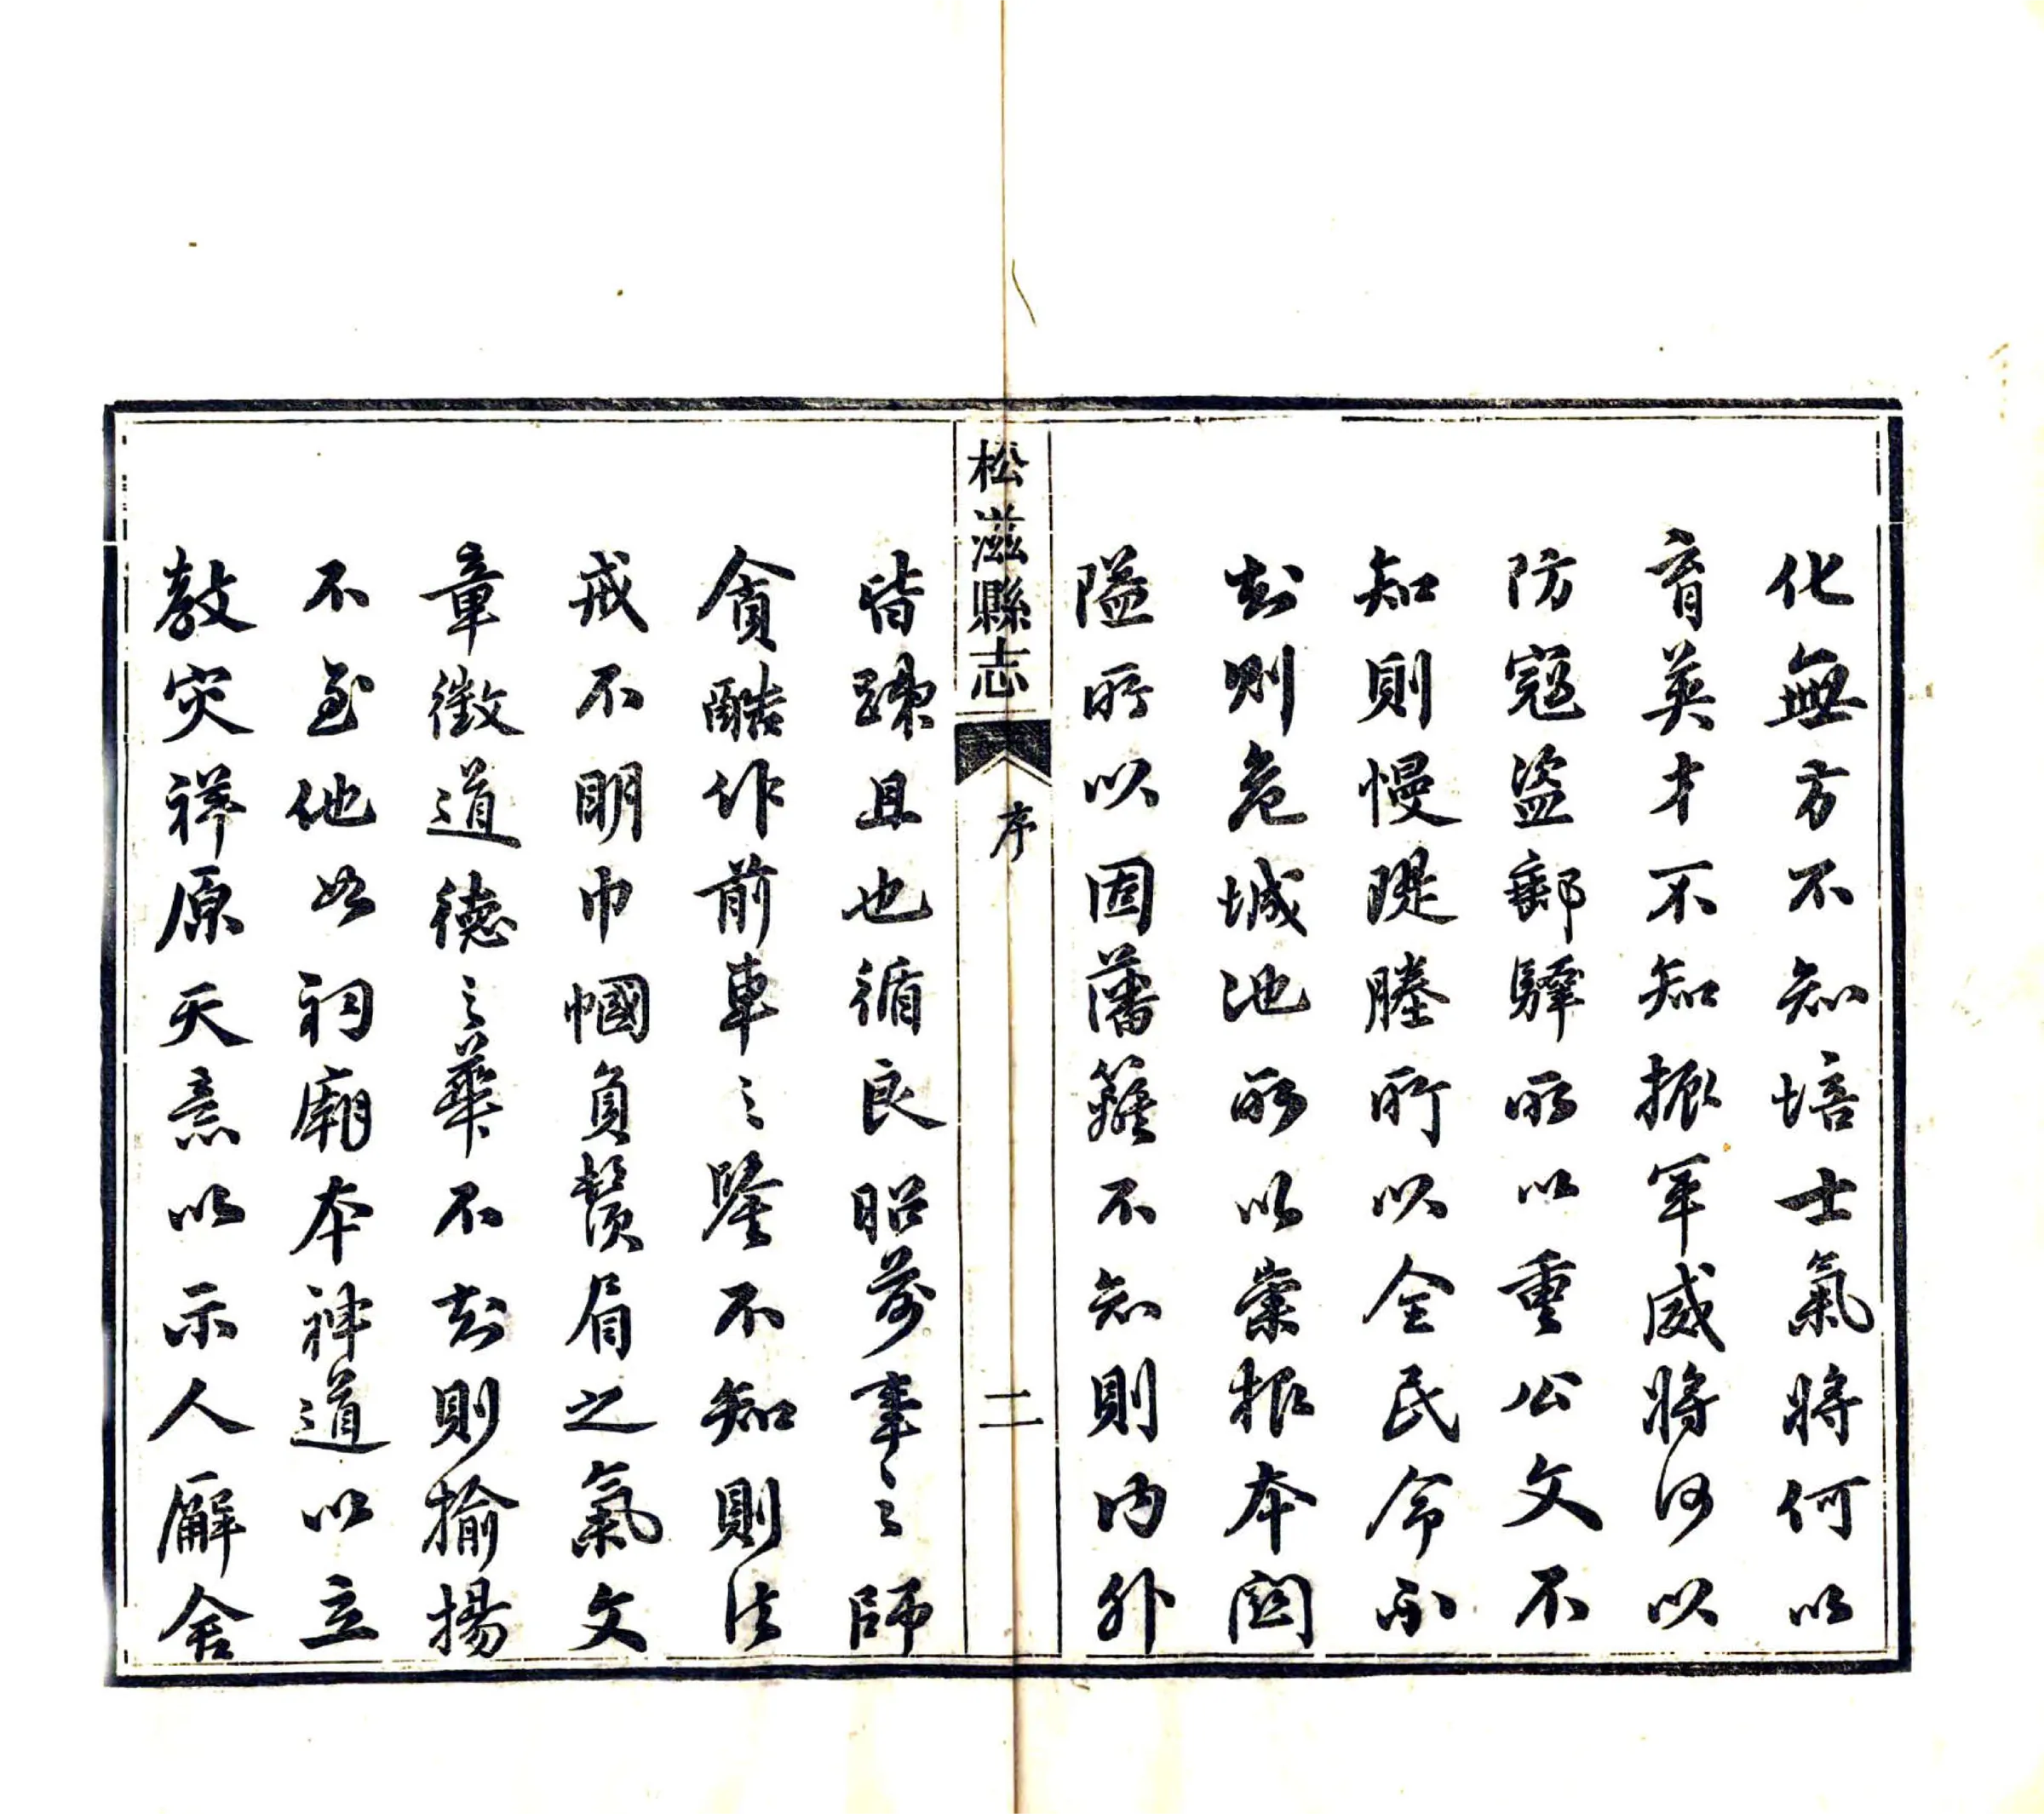 化無方不知培士氣將何以
育英才不知振軍威將何以
防寇盜郵驛所以重公文不
知則慢隄塍所以全民命不
知則危城池所以崇根本関
隘所以固藩籬不知則內外
松滋縣志
序
二
皆踈且也循良昭前事之師
貪酷作前車之鑒不知則法
戒不明巾幗負鬚眉之氣文
章徵道德之華不知則揄揚
不至他如祠廟本神道以立
教灾祥原天意以示人廨舍